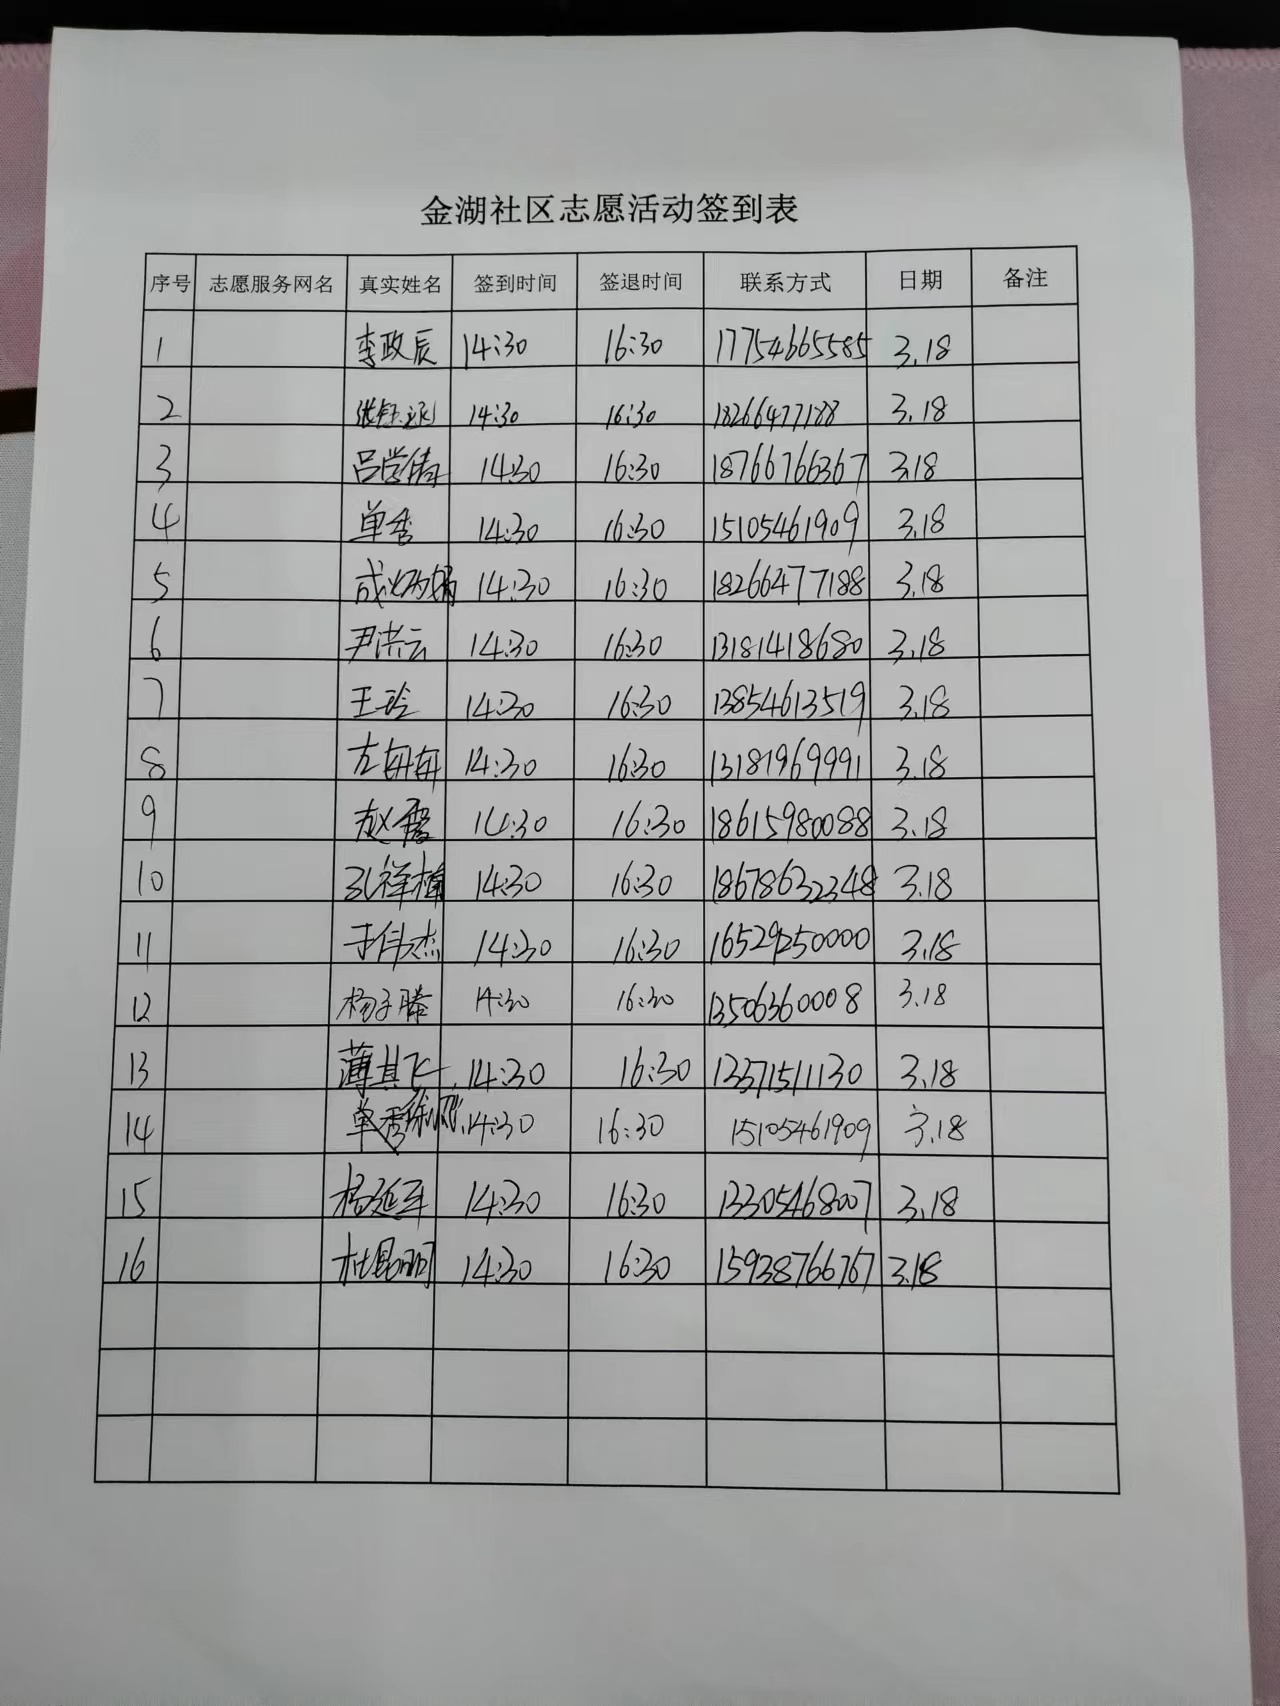 金湖社区志愿活动签到表
序号 志愿服务网名 真实姓名 签到时间 签退时间 联系方式 日期 备注
1 李政辰 14:30 16:30 17754665585 3.18
2 14:30 16:30 18266477188 3.18
3 吕学倩 14:30 16:30 18766766367 3.18
4 单秀 14:30 16:30 15105461909 3.18
5 14:30 16:30 18266477188 3.18
6 尹洪云 14:30 16:30 13181418680 3.18
7 王玲 14:30 16:30 13854613519 3.18
8 左冉冉 14:30 16:30 13181969991 3.18
9 14:30 16:30 18615980088 3.18
10 14:30 16:30 18678632348 3.18
11 于伟杰 14:30 16:30 16529250000 3.18
12 杨子腾 14:30 16:30 13506360008 3.18
13 薄其飞 14:30 16:30 13371511130 3.18
14 单秀 14:30 16:30 15105461909 3.18
15 杨延军 14:30 16:30 13305468007 3.18
16 14:30 16:30 15938766767 3.18